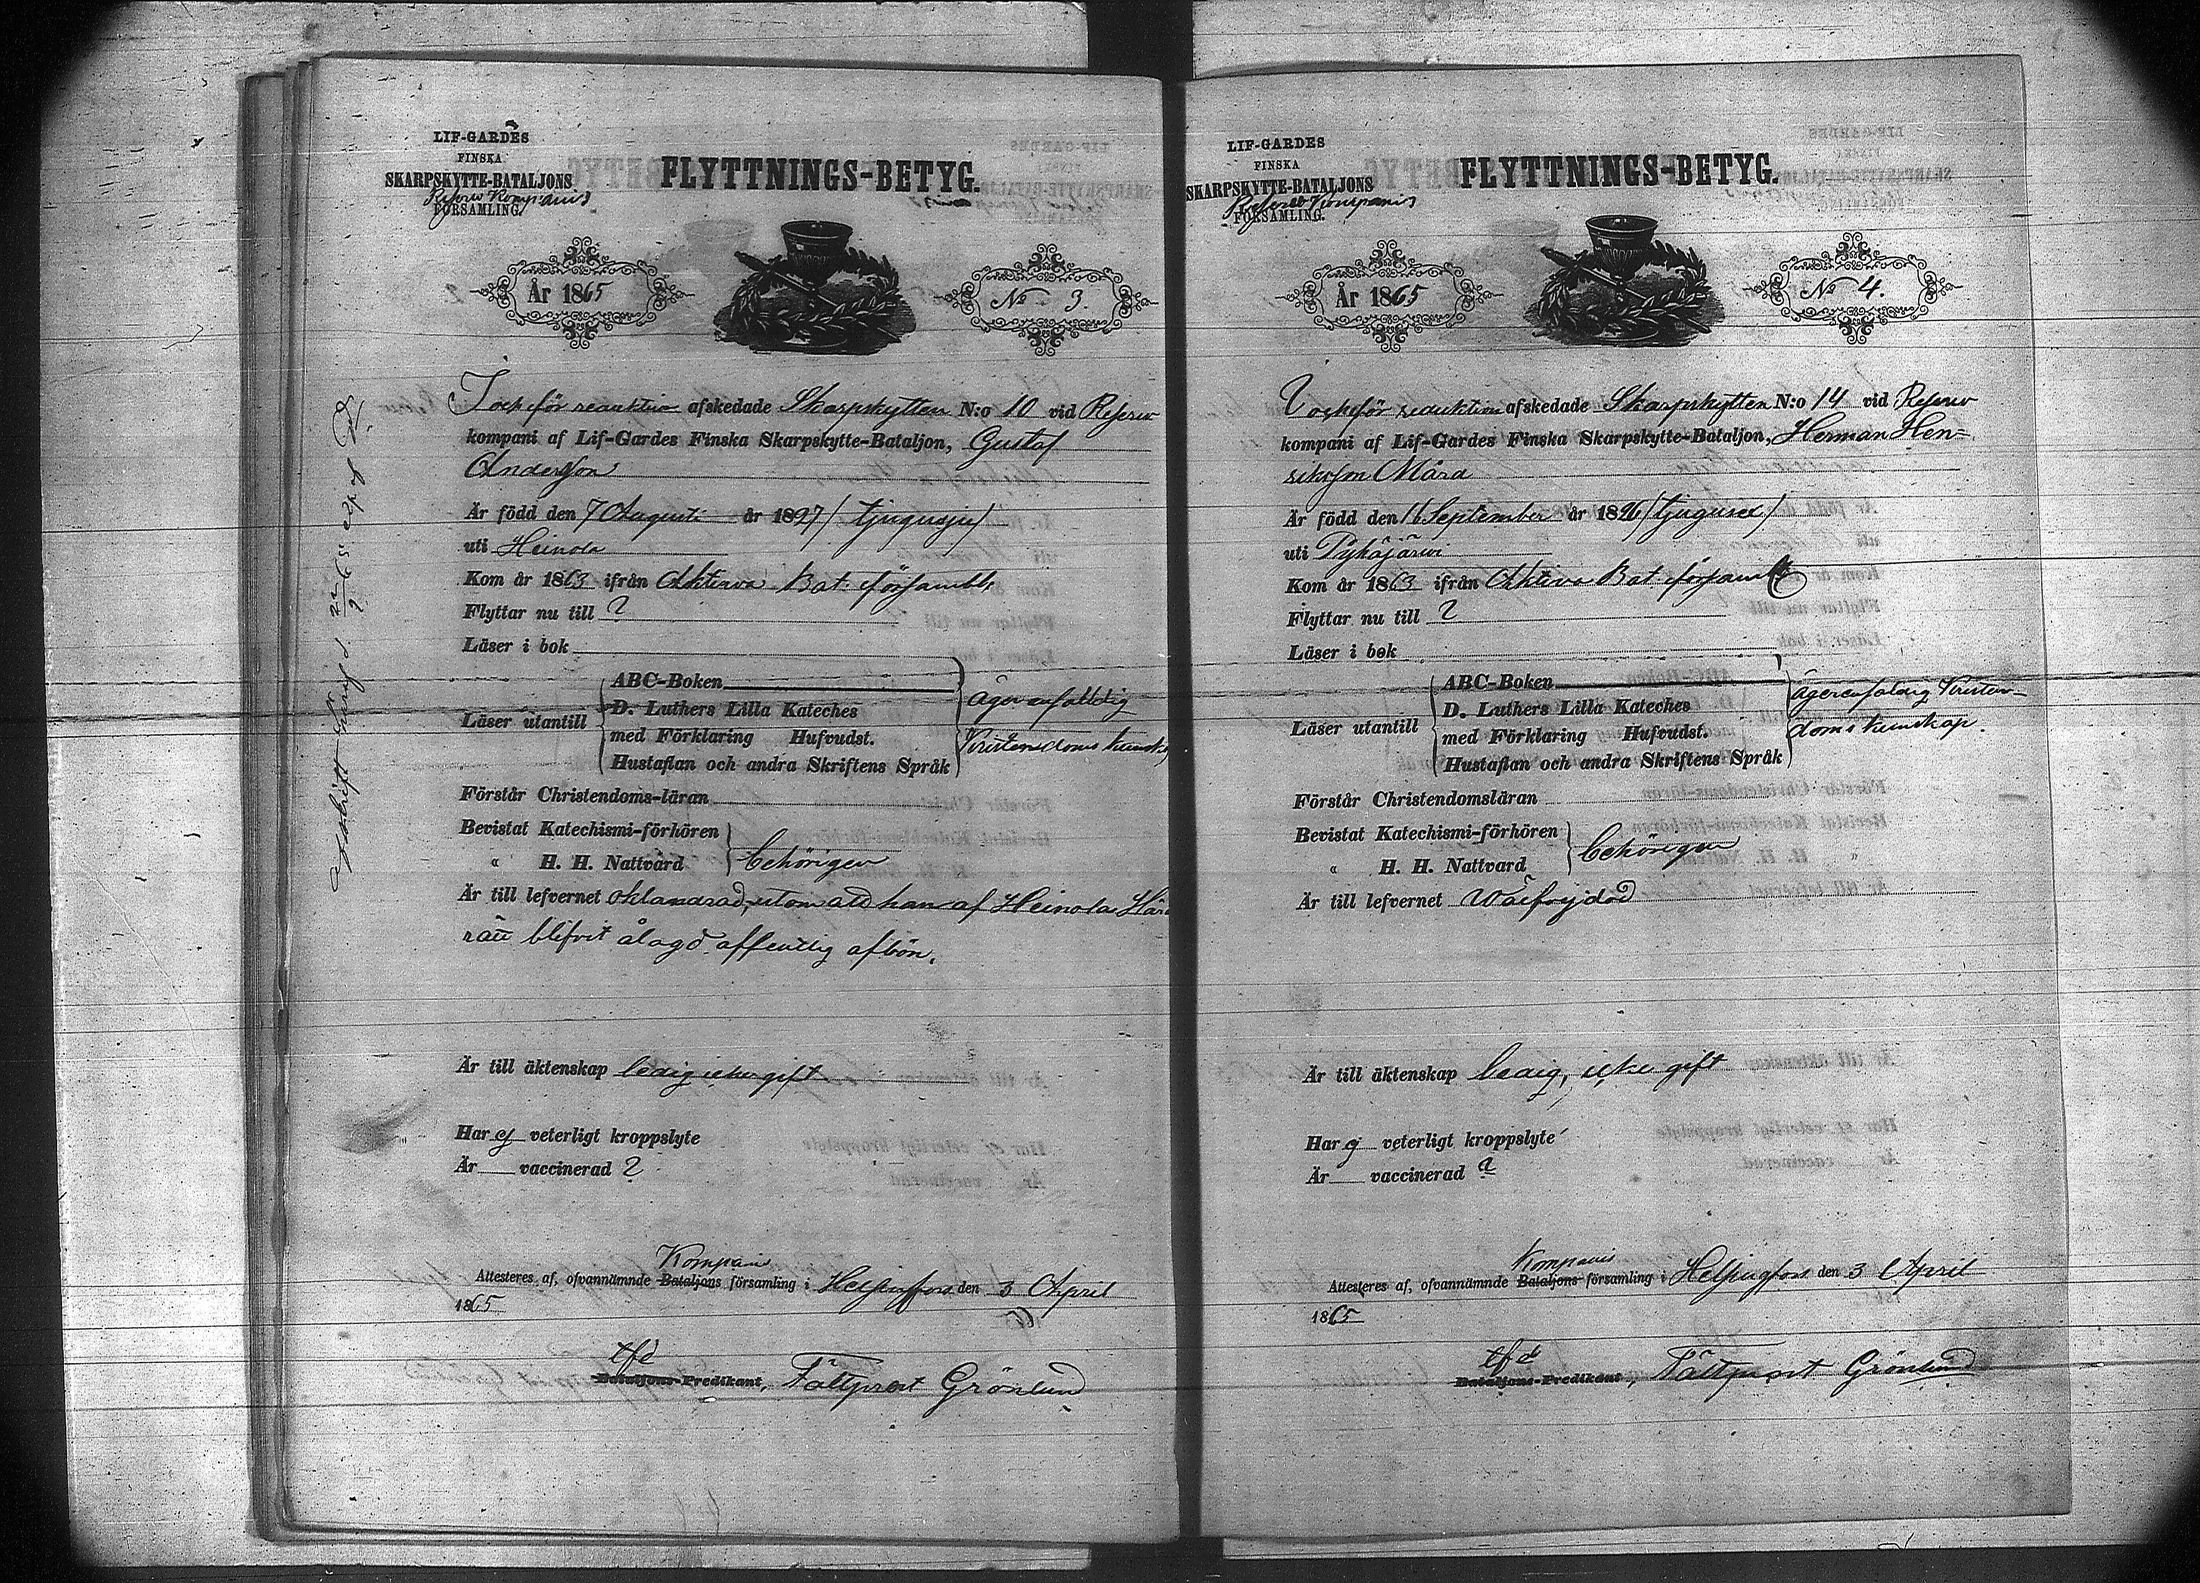 LIF-GARDES
FINSKA
SKARPSKYTTE-BATALJONS
Reserv Kompanis
FÖRSAMLING.
FLYTTNINGS-BETYG.
År 1865
No 3.
afskedade Skarpskytten N:o 10 vid Reserv
kompani af Lif-Gardes Finska Skarpskytte-Bataljon, Gustaf
Andersson
Är född den 7 Augusti år 1827 / tjugusju /
uti Heinola
Kom år 1863 ifrån Aktiva Bat. församl.
Flyttar nu till ?
Läser i bok
Läser utantill
ABC-Boken
D. Luthers Lilla Kateches
med Förklaring Hufvudst.
Hustaflan och andra Skriftens Språk
Äger enfaldig
Kristendoms kunsk.
Förstår Christendoms-läran
Bevistat Katechismi-förhören
" H. H. Nattvard
behörigen
Är till lefvernet oklandrad, utom att han af Heinola Hära
rätt blifvit ålagd offentlig afbön.
Är till äktenskap ledig icke gift
Har ej veterligt kroppslyte
Är vaccinerad ?
Kompani
Attesteres af, ofvannämnde Bataljons församling i Helsingfors den 3 April
1865
tfd
Bataljons-Predikant, Fältprost Grönlund
Afskrift
LIF-GARDES
FINSKA
SKARPSKYTTE-BATALJONS
Reserv Kompanis
FÖRSAMLING.
FLYTTNINGS-BETYG.
År 1865
No 4.
afskedade Skarpskytten N:o 14 vid Reserv
kompani af Lif-Gardes Finska Skarpskytte-Bataljon, Herman Hen=
riksson Måra
Är född den 16 September år 1826 / tjugusex /
uti Pyhäjärvi
Kom år 1863 ifrån Aktiva Bat. församl.
Flyttar nu till ?
Läser i bok
Läser utantill
ABC-Boken
D. Luthers Lilla Kateches
med Förklaring Hufvudst.
Hustaflan och andra Skriftens Språk
Äger enfaldig Kristen-
doms kunskap.
Förstår Christendomsläran
Bevistat Katechismi-förhören
" H. H. Nattvard
behörigen
Är till lefvernet Wälfrejdad
Är till äktenskap ledig, icke gift
Har ej veterligt kroppslyte
Är vaccinerad ?
Kompanis
Attesteres af, ofvannämnde Bataljons församling i Helsingfors den 3 April
1865
tfd
Bataljons-Predikant, Fältprost Grönlund